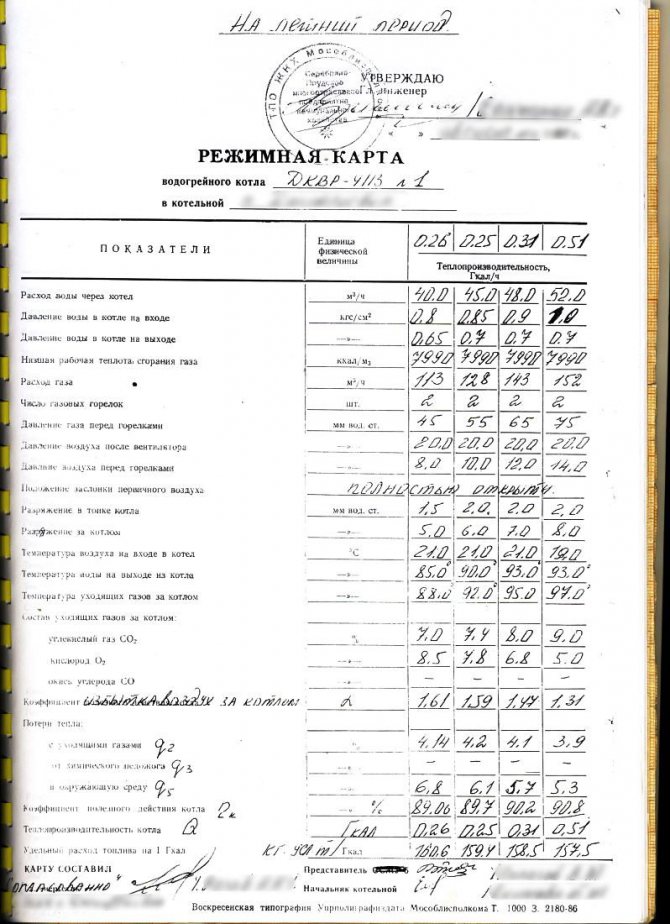 НА ЛЕТНИЙ ПЕРИОД.
УТВЕРЖДАЮ
Гл. Инженер
ТПО ЖКХ Мособлисполкома
РЕЖИМНАЯ КАРТА
водогрейного котла ДКВР-4/13 №1
в котельной
ПОКАЗАТЕЛИ Единица физической величины 0.26 0.25 0.31 0.51
Теплопроизводительность, Гкал/ч
Расход воды через котел м³/ч 40.0 45.0 48.0 52.0
Давление воды в котле на входе кгс/см² 0.8 0.85 0.9 1.0
Давление воды в котле на выходе —»— 0.65 0.7 0.7 0.7
Низшая рабочая теплота сгорания газа ккал/м₃ 7990 7990 7990 7990
Расход газа м³/ч 113 128 143 152
Число газовых горелок шт. 2 2 2 2
Давление газа перед горелками мм вод. ст. 45 55 65 75
Давление воздуха после вентилятора —»— 20.0 20.0 20.0 20.0
Давление воздуха перед горелками —»— 8.0 10.0 12.0 14.0
Положение заслонки первичного воздуха ПОЛНОСТЬЮ ОТКРЫТЫ.
Разряжение в топке котла мм вод. ст. 1.5 2.0. 2.0 2.0
Разряжение за котлом —»— 5.0 6.0 7.0 8.0
Температура воздуха на входе в котел °С 21.0 21.0 21.0 19.0
Температура воды на выходе из котла —»— 85.0° 90.0° 93.0° 93.0°
Температура уходящих газов за котлом —»— 88.0° 92.0° 95.0 97.0°
Состав уходящих газов за котлом:
углекислый газ СО₂ % 7.0 7.4 8.0 9.0
кислород О₂ —»— 8.5 7.8 6.8 5.0
окись углерода СО —»— – – – –
Коэффициент ИЗБЫТКА ВОЗДУХ ЗА КОТЛОМ α 1.61 1.59 1.47 1.31
Потери тепла:
с уходящими газами q2 % 4.14 4.2 4.1 3.9
от химического недожога q3 —»— – – – –
в окружающую среду q5 —»— 6.8 6.1 5.7 5.3
Коэффициент полезного действия котла —»— % 89.06 89.7 90.2 90.8
Теплопроизводительность котла Q Гкал 0.26 0.25 0.31 0.51
Удельный расход топлива на 1 Гкал КГ. УСЛ Т/Гкал 160.6 159.4 158.5 157.5
КАРТУ СОСТАВИЛ Представитель
"Согласованно" Начальник котельной
Воскресенская типография Упрполиграфиздата Мособлисполкома Т. 1000 З. 2180-86